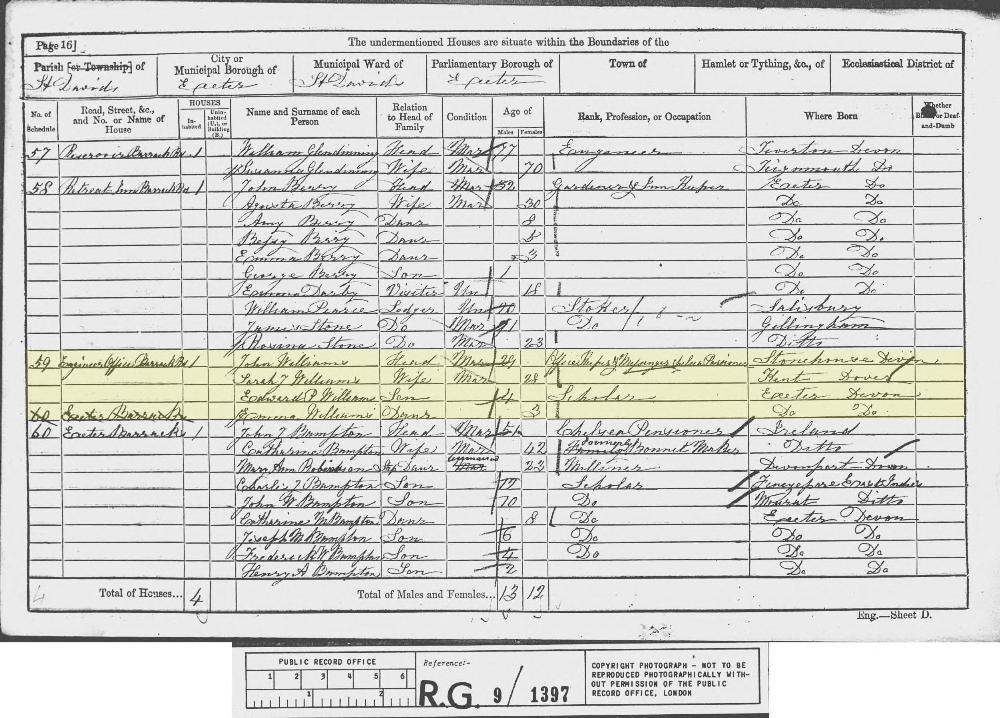 Page 16]
The undermentioned Houses are situate within the Boundaries of the
Parish [or Township] of
St Davids
City or Municipal Borough of
Exeter
Municipal Ward of
St Davids
Parliamentary Borough of
Exeter
Town of
Hamlet or Tything, &c., of
Ecclesiastical District of
No. of Schedule
Road, Street, &c., and No. or Name of House
HOUSES
Inhabited
Uninhabited (U.), or Building (B.)
Name and Surname of each Person
Relation to Head of Family
Condition
Age of
Males
Females
Rank, Profession, or Occupation
Where Born
Whether Blind, or Deaf-and-Dumb
57 Reservoir Barrack Rd 1 William Glendinning Head Mar 77 Engineer Tiverton Devon
Susanna Glendinning Wife Mar 70 Do
58 Retreat Inn Barrack Rd 1 John Berry Head Mar 32 Gardener & Inn Keeper Exeter Do
Berry Wife Mar 30 Do Do
Amy Berry Daur 8 Do Do
Betsy Berry Daur Do Do
Emma Berry Daur 3 Do Do
George Berry Son 1 Do Do
Emma Darby Visiter Un 18 Do Do
William Pearce Lodger Un Stoker Salisbury
James Stone Do Mar Do Gillingham
Rosina Stone Do Mar 23 Ditto
59 Engineer Office Barrack Rd 1 John William Head Mar 29 Office Keeper & Messenger Chelsea Pensioner Stonehouse Devon
Sarah J Williams Wife Mar 28 Kent Dover
Edward P William Son 4 Scholar Exeter Devon
60 Exeter Barracks Emma Williams Daur 3 Do Do
60 Exeter Barracks 1 John J Bampton Head Mar 51 Chelsea Pensioner Ireland
Catharine Bampton Wife Mar 42 formerly Bonnet Maker Ditto
Mary Ann Robertson Daur unmarried 22 Milliner Devonport Devon
Charles J Bampton Son Scholar East Indies
John W Bampton Son 10 Do Ditto
Catharine M Bampton Daur 8 Do Exeter Devon
Joseph M Bampton Son 6 Do Do Do
Frederick W Bampton Son 4 Do Do Do
Henry A Bampton Son 2 Do Do
4 Total of Houses... 4 Total of Males and Females... 13 12
Eng.—Sheet D.
PUBLIC RECORD OFFICE
1 2 3 4 5 6
1 2
Reference:-
R.G. 9/1397
COPYRIGHT PHOTOGRAPH - NOT TO BE
REPRODUCED PHOTOGRAPHICALLY WITH-
OUT PERMISSION OF THE PUBLIC
RECORD OFFICE, LONDON